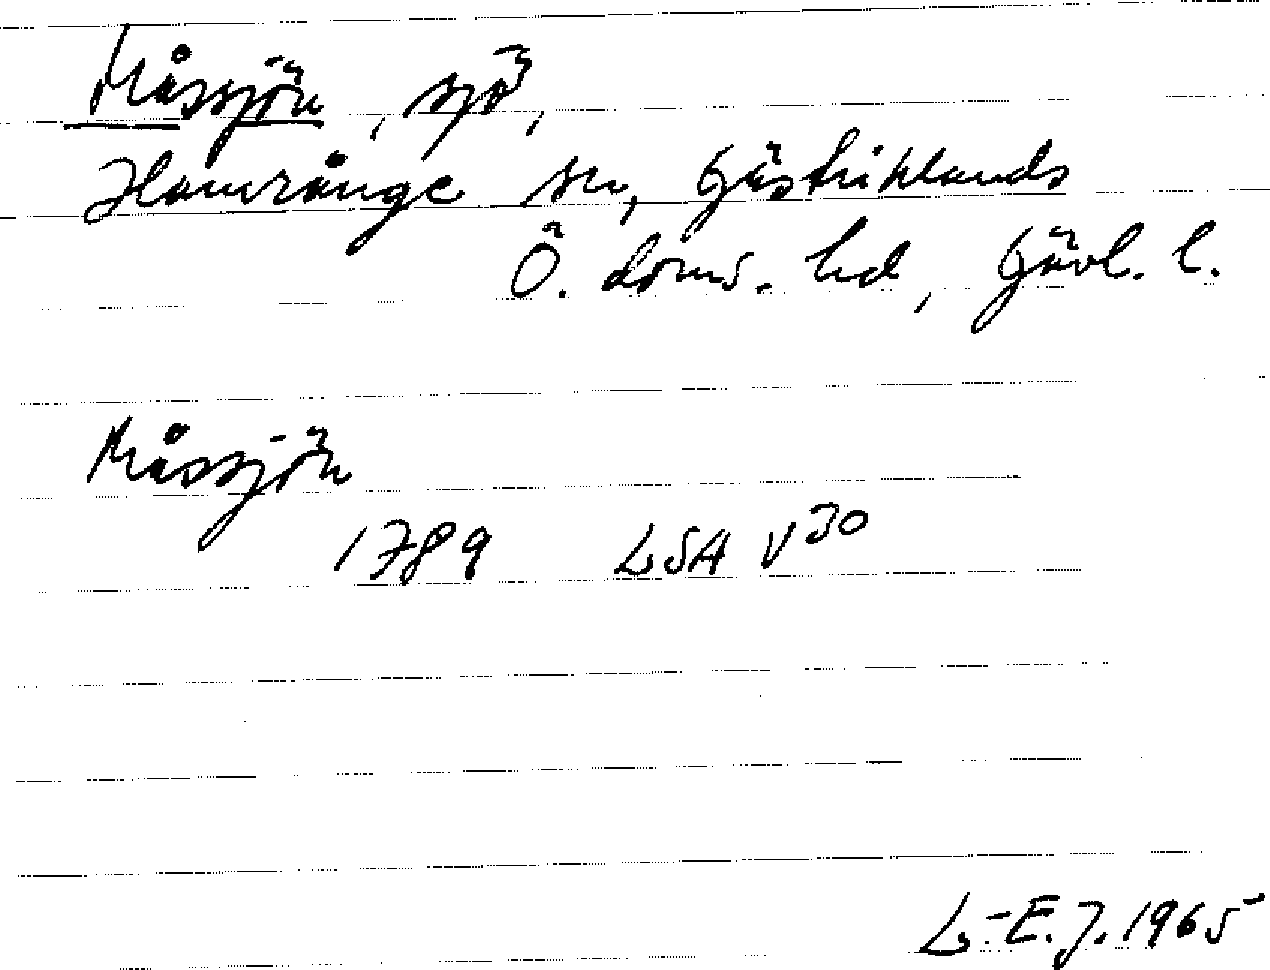 Måssjön, sjö,
Hamrånge sn, Gästriklands
Ö. doms. hd, Gävl. l.
Måssjön
1789 LSA V30
L-E.J. 1965